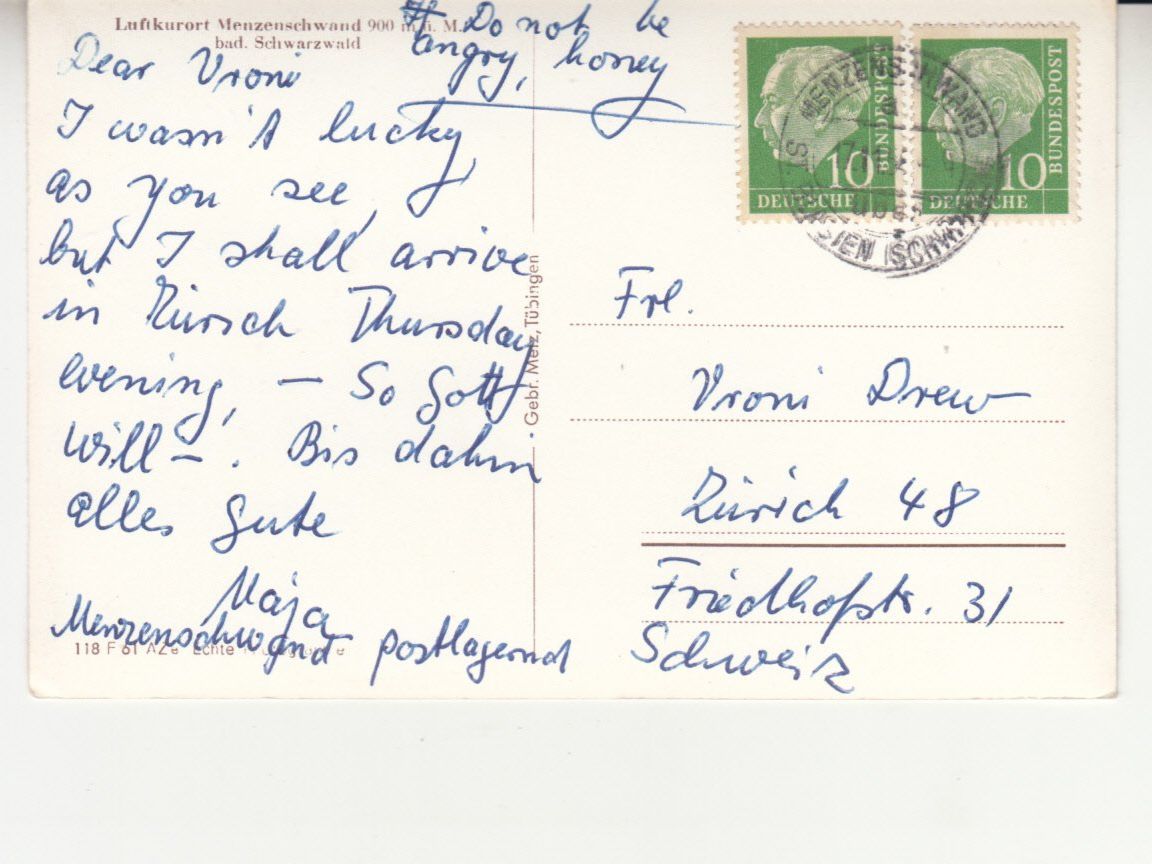 Luftkurort Menzenschwand 900 m ü. M.
bad. Schwarzwald
Do not be
angry, honey
Dear Vroni
I wasn't lucky
as you see,
but I shall arrive
in Zürich Thursday
evening, — So Gott
will —. Bis dahin
alles Gute
Maja
Menzenschwand postlagernd
118 F 61 AZe Echte
Gebr. Metz, Tübingen
10
BUNDESPOST
DEUTSCHE
10
BUNDESPOST
DEUTSCHE
MENZENSCHWAND
ST. BLASIEN (SCHWARZW)
Frl.
Vroni Drew
Zürich 48
Friedhofstr. 31
Schweiz